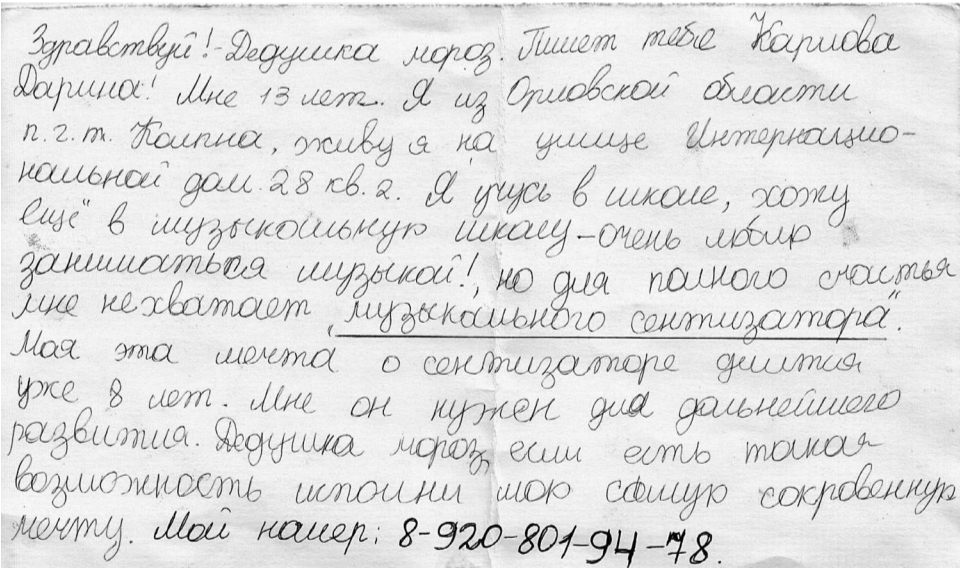 Здравствуй!-Дедушка мороз. Пишет тебе Карлова
Дарина! Мне 13 лет. Я из Орловской области
п.г.т. Колпна, живу я на улице Интернацио-
нальной дом.28 кв.2. Я учусь в школе, хожу
ещё в музыкальную школу-очень люблю
заниматься музыкой!, но для полного счастья
мне нехватает "музыкального сентизатора".
Моя эта мечта о сентизаторе длится
уже 8 лет. Мне он нужен для дальнейшего
развития. Дедушка мороз, если есть такая
возможность исполни мою самую сокровенную
мечту. Мой номер: 8-920-801-94-78.